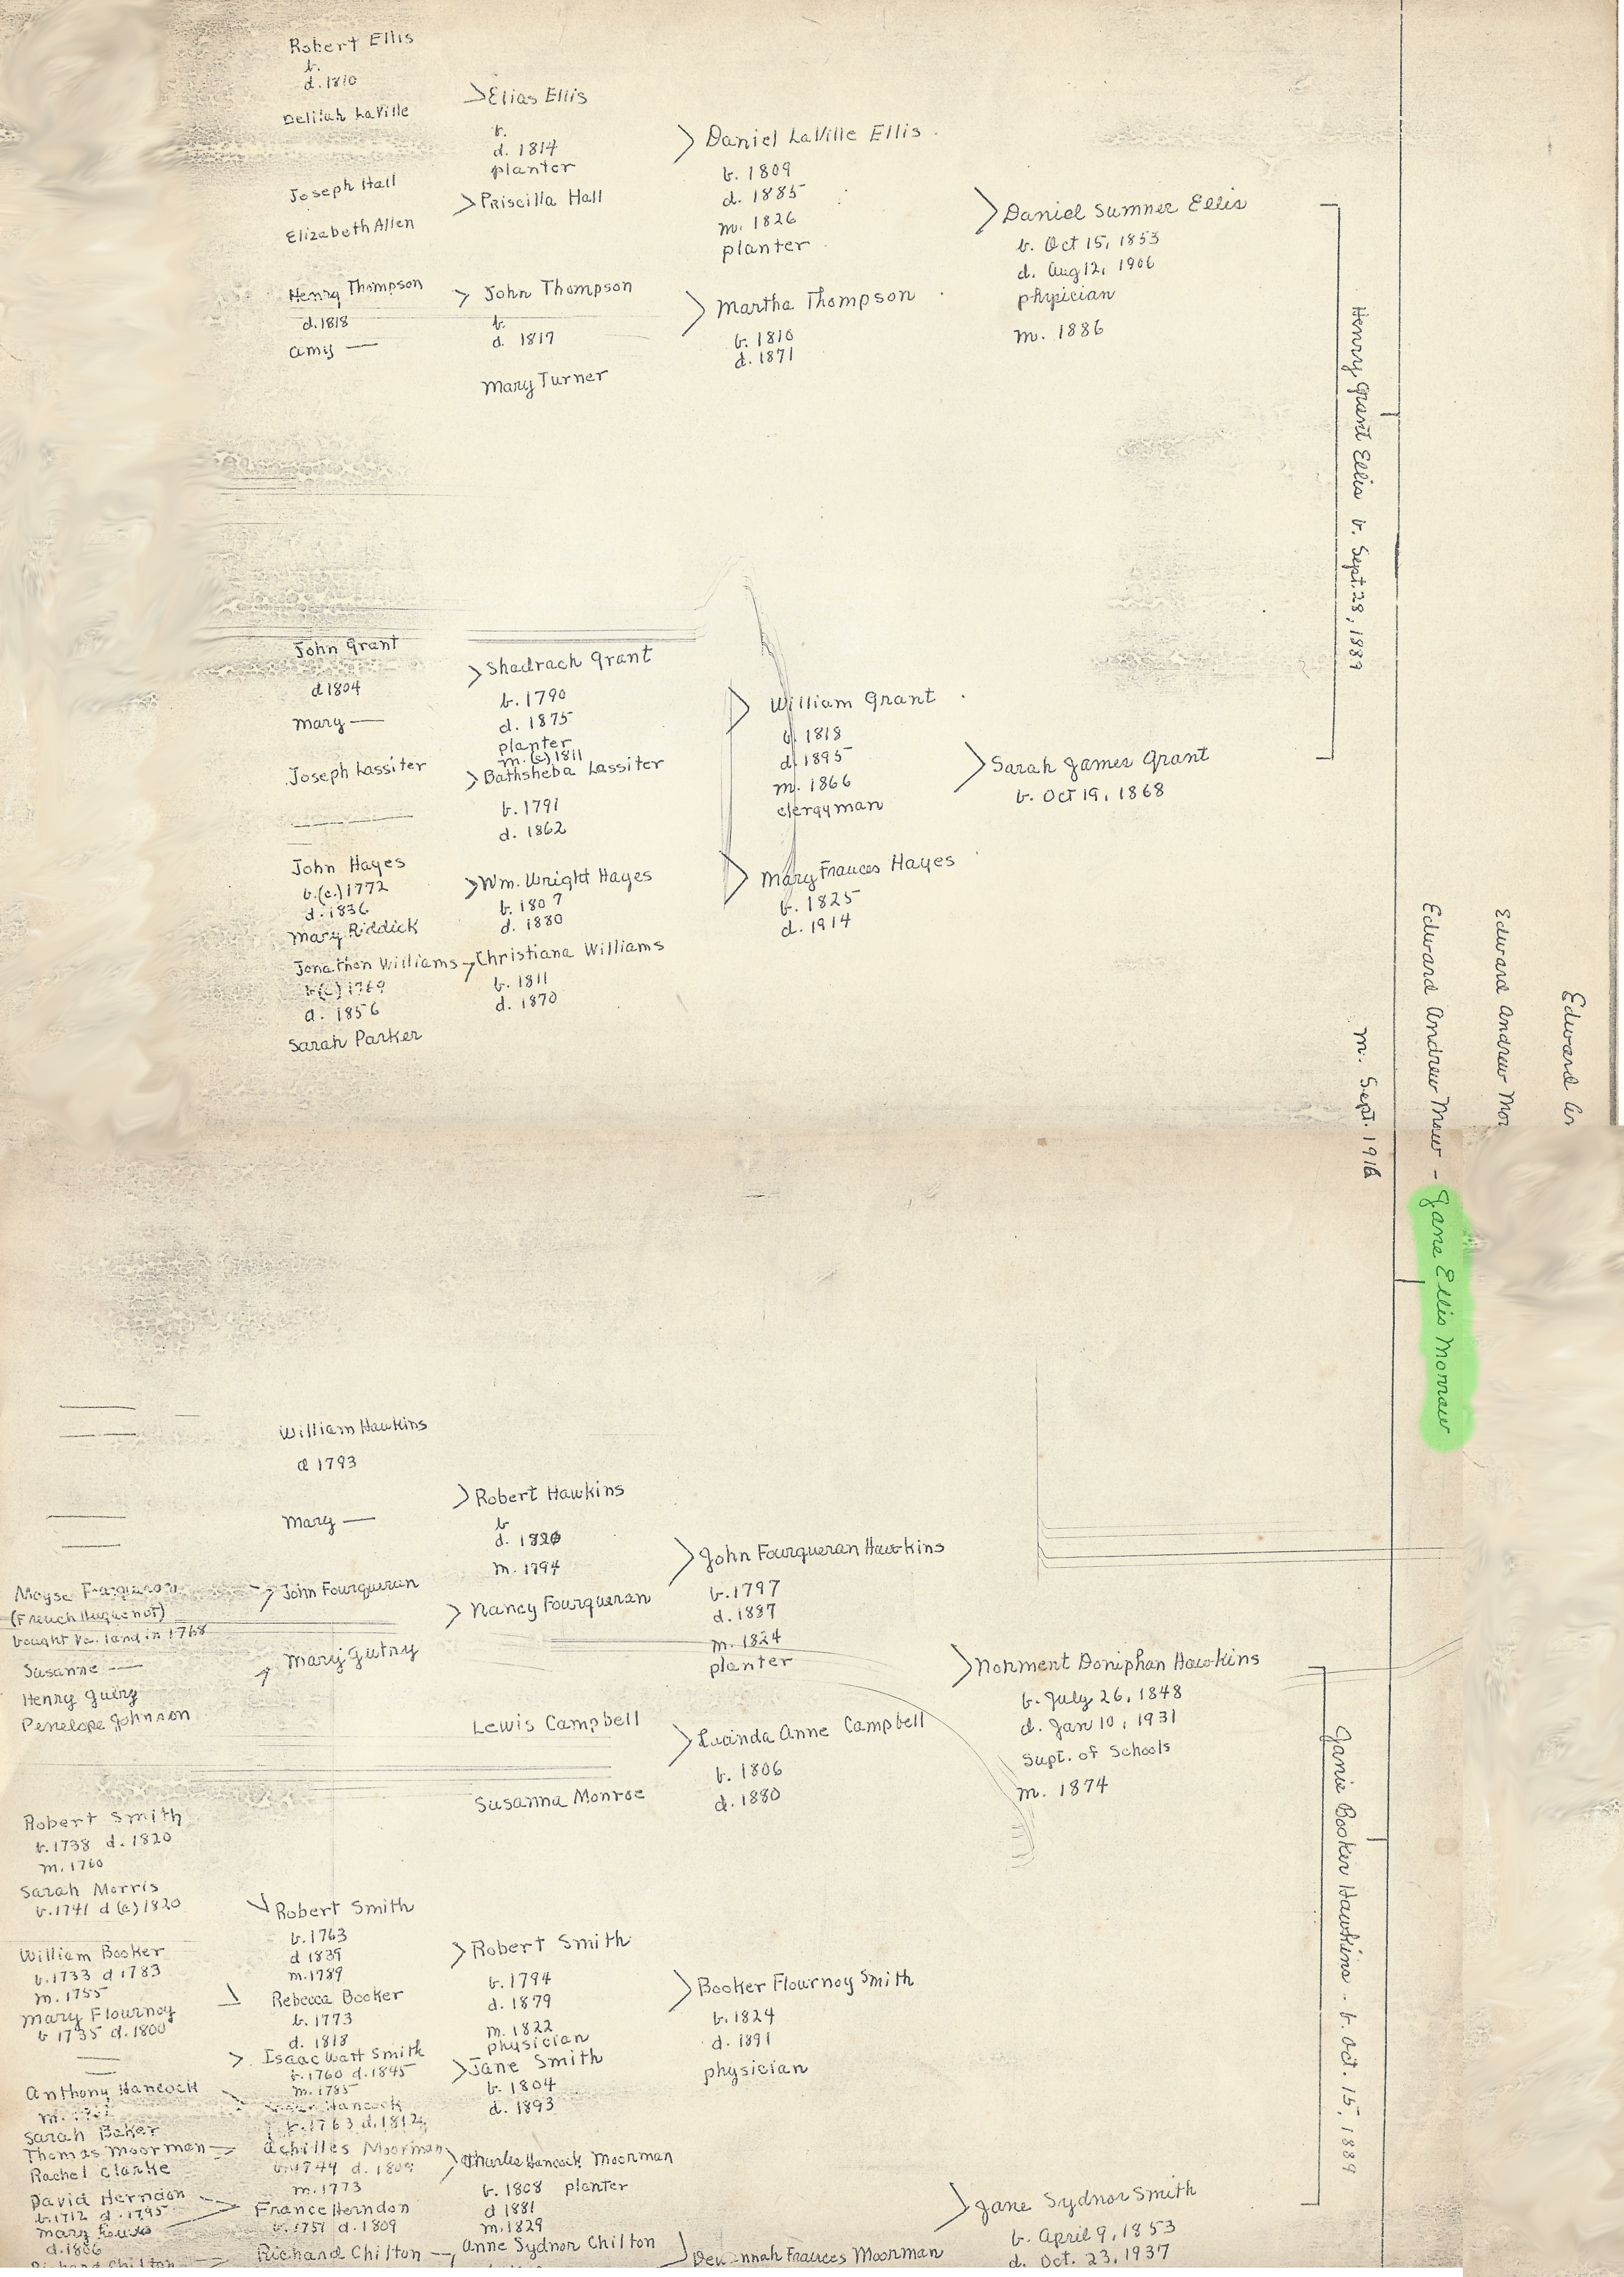 Robert Ellis
b.
d. 1810
Delilah LaVille
Joseph Hall
Elizabeth Allen
Henry Thompson
d. 1818
Amy —
Elias Ellis
b.
d. 1814
planter
Priscilla Hall
John Thompson
b.
d. 1817
Mary Turner
Daniel LaVille Ellis
b. 1809
d. 1885
m. 1826
planter
Martha Thompson
b. 1810
d. 1871
Daniel Sumner Ellis
b. Oct 15, 1853
d. Aug 12, 1906
physician
m. 1886
Henry Grant Ellis b. Sept. 28, 1889
John Grant
d 1804
Mary —
Joseph Lassiter
John Hayes
b. (c.) 1772
d. 1836
Mary Riddick
Jonathon Williams
b (c) 1769
d. 1856
Sarah Parker
Shadrach Grant
b. 1790
d. 1875
planter
m. (c) 1811
Bathsheba Lassiter
b. 1791
d. 1862
Wm. Wright Hayes
b. 1807
d. 1880
Christiana Williams
b. 1811
d. 1870
William Grant
b. 1818
d. 1895
m. 1866
clergyman
Mary Frances Hayes
b. 1825
d. 1914
Sarah James Grant
b. Oct 19, 1868
m. Sept. 1916
Edward Andrew Morrow - Jane Ellis Morrow
Edward Andrew Mor
Edward An
William Hawkins
d 1793
Mary —
Moyse
(French Huguenot)
bought Va. land in 1768
Susanne —
Henry Gutry
Penelope Johnson
John Fourqueran
Mary Gutry
Robert Hawkins
b
d. 1820
m. 1794
Nancy Fourqueran
Lewis Campbell
Susanna Monroe
John Fourqueran Hawkins
b. 1797
d. 1887
m. 1824
planter
Lucinda Anne Campbell
b. 1806
d. 1880
Norment Doniphan Hawkins
b. July 26, 1848
d. Jan 10, 1931
Supt. of Schools
m. 1874
Janie Booker Hawkins - b. Oct. 15, 1889
Robert Smith
b. 1738 d. 1820
m. 1760
Sarah Morris
b. 1741 d (c) 1820
William Booker
b. 1733 d 1783
m. 1755
Mary Flournoy
b 1735 d. 1800
Anthony Hancock
m.
Sarah Baker
Thomas Moorman
Rachel Clarke
David Herndon
b. 1712 d. 1795
Mary
d. 1806
Richard Chilton
Robert Smith
b. 1763
d 1839
m. 1789
Rebecca Booker
b. 1773
d. 1818
Isaac Watt Smith
b. 1760 d. 1845
m. 1785
Hancock
b. 1763 d. 1812
Achilles Moorman
b. 1744 d.
m. 1773
France Herndon
b. 1751 d. 1809
Richard Chilton
Robert Smith
b. 1794
d. 1879
m. 1822
physician
Jane Smith
b. 1804
d. 1893
Charles Hancock Moorman
b. 1808 planter
d 1881
m. 1829
Anne Sydnor Chilton
Booker Flournoy Smith
b. 1824
d. 1891
physician
Frances Moorman
Jane Sydnor Smith
b. April 9, 1853
d. Oct. 23, 1937